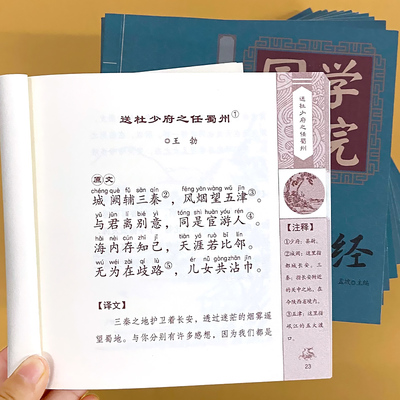 送杜少府之任蜀州①
◎王 勃
原文
chéng què fǔ sān qín fēng yān wàng wǔ jīn
城阙辅三秦②，风烟望五津③。
yǔ jūn lí bié yì tóng shì huàn yóu rén
与君离别意，同是宦游人④。
hǎi nèi cún zhī jǐ tiān yá ruò bǐ lín
海内存知己，天涯若比邻。
wú wéi zài qí lù ér nǚ gòng zhān jīn
无为在歧路⑤，儿女共沾巾。
【译文】
三秦之地护卫着长安，透过迷茫的烟雾遥
望蜀地。与你分别有许多感想，因为我们都是
送杜少府之任蜀州
【注释】
①少府：县尉。
②城阙：这里指
都城长安。三
秦：指长安附近
的关中之地，在
今陕西省境内。
③五津：这里指
岷江的五大渡
口。
23
国学
院
经